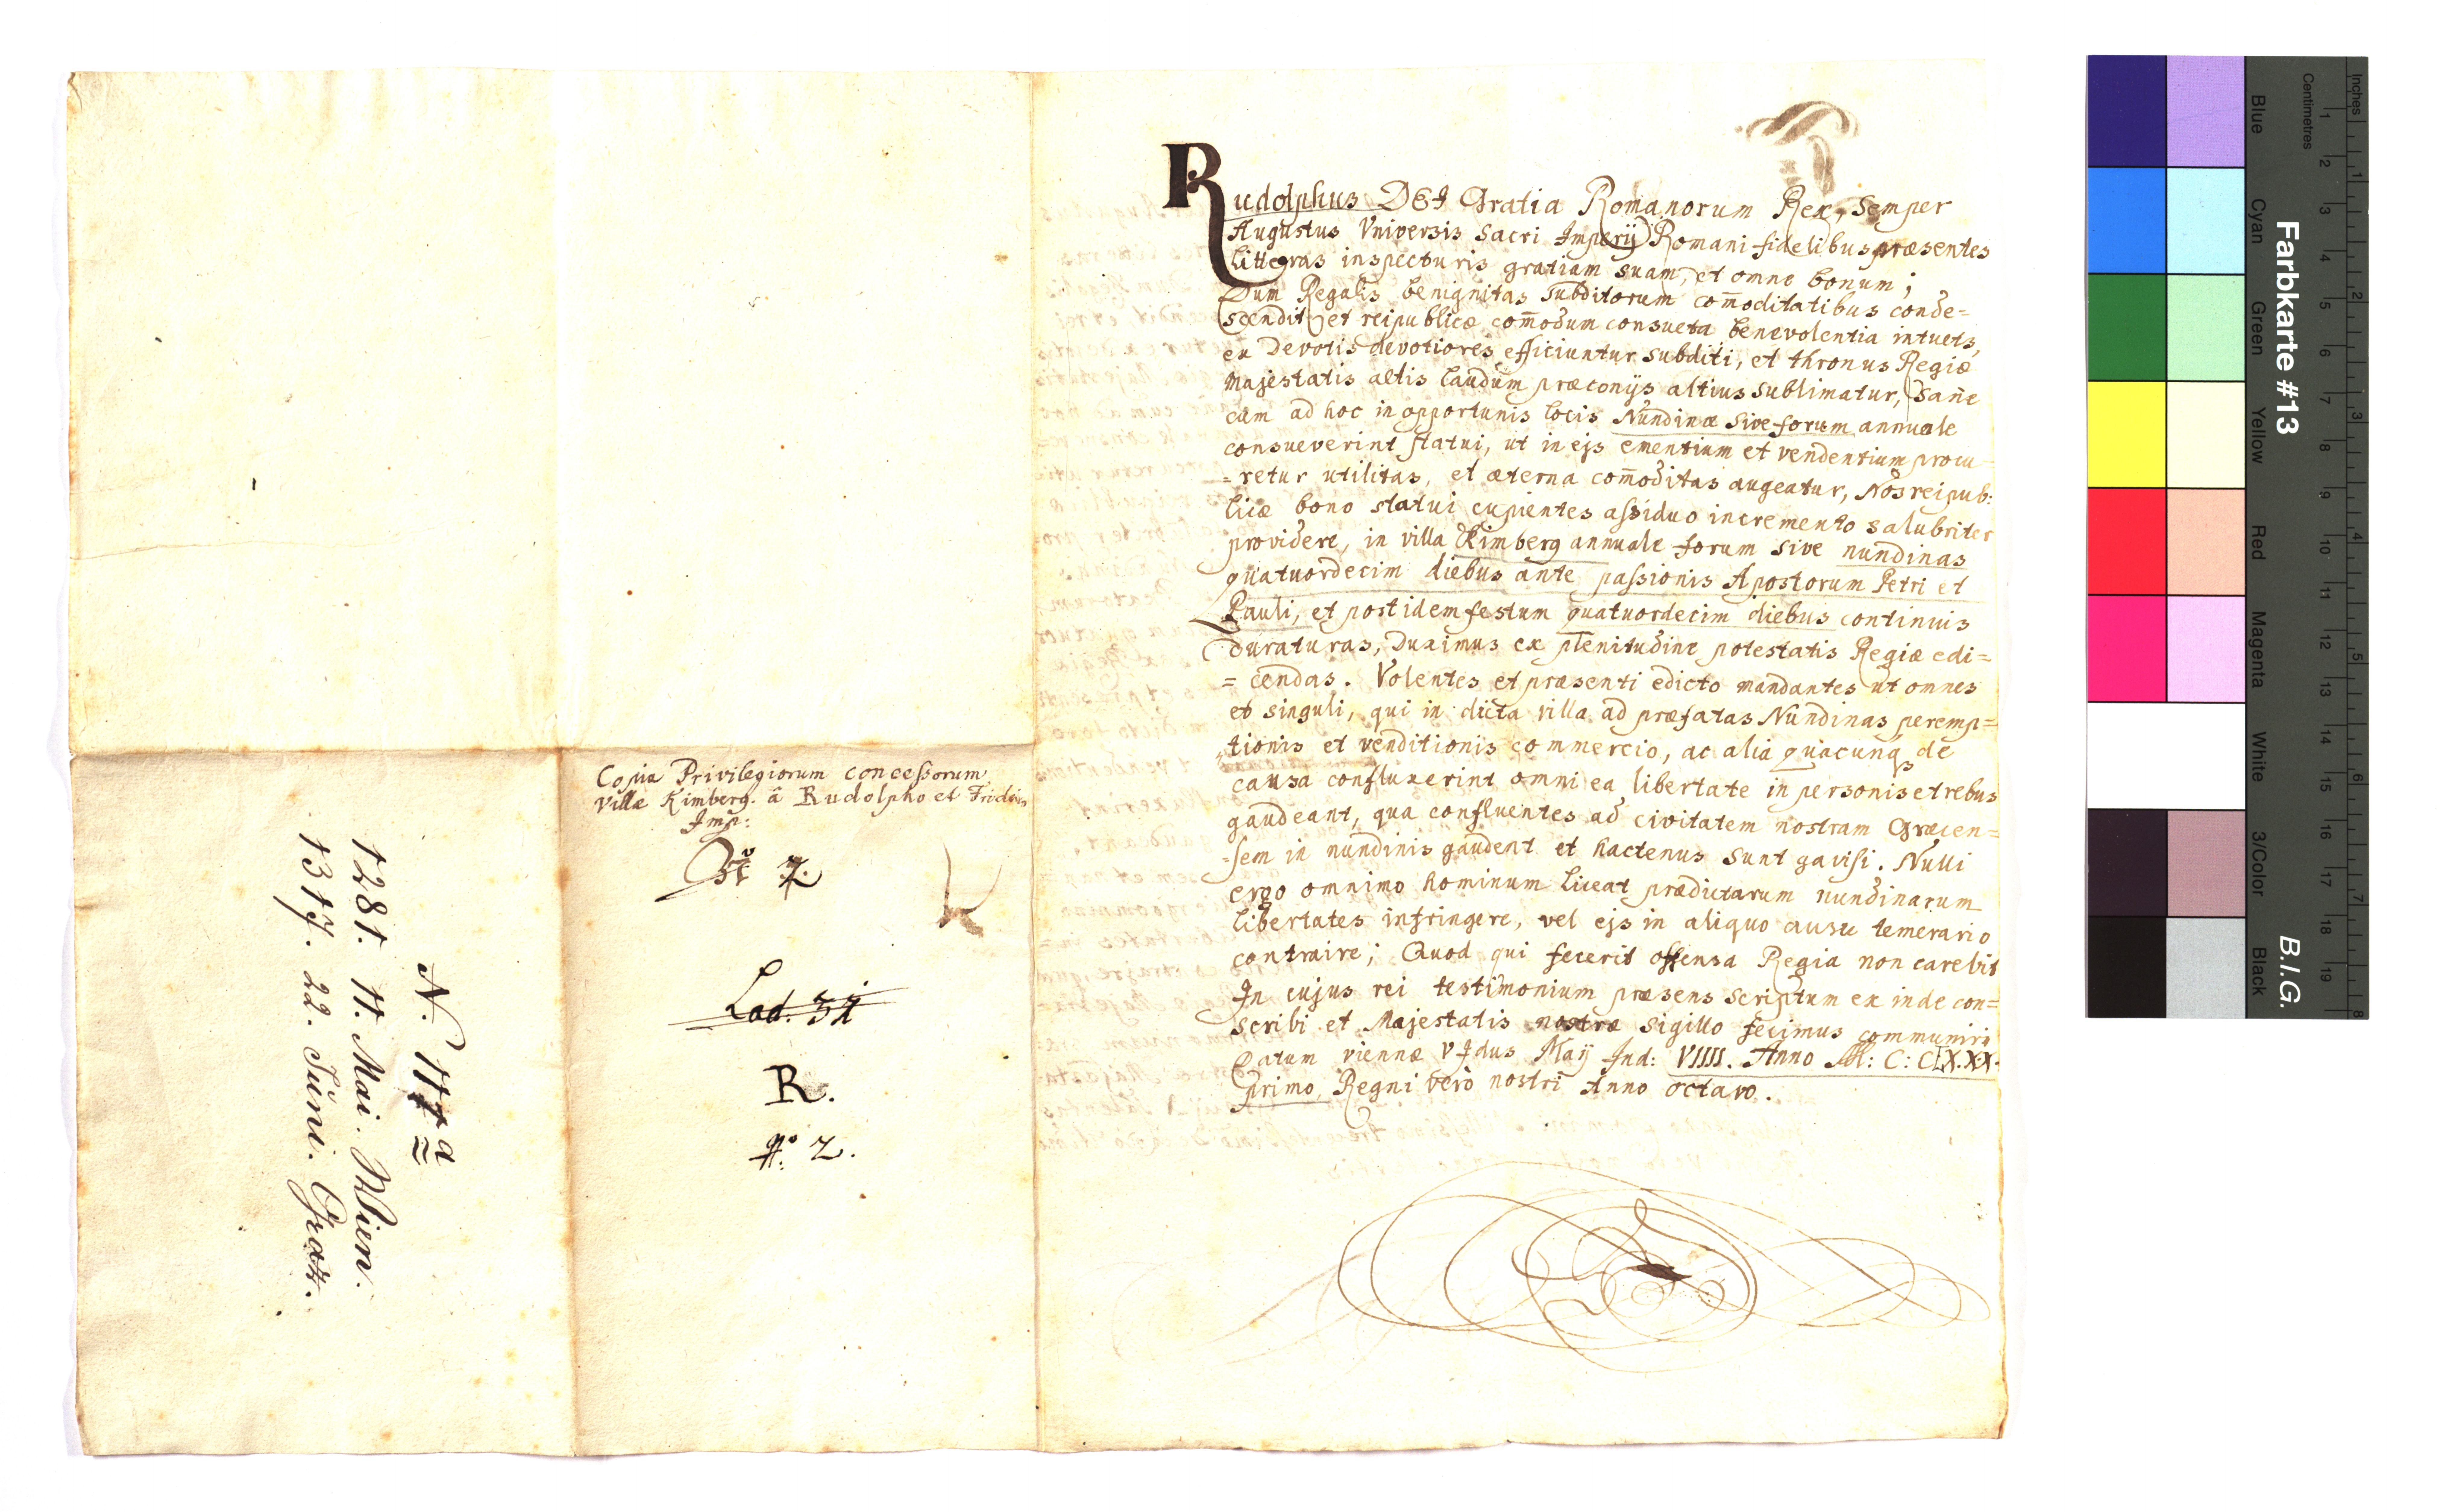 Rudolphus DEI Gratia Romanorum Rex, Semper
Augustus Vniversis Sacri Imperij Romani fidelibus præsentes
litteras inspecturis gratiam suam, et omne bonum;
Dum Regalis benignitas Subditorum com̄oditatibus conde=
scendit, et reipublicæ com̄odum consueta benevolentia intuets,
ex Devotis devotiores efficiuntur subditi, et thronus Regiæ
Majestatis altis laudum præconijs altius sublimatur, Sane
cum ad hoc in opportunis locis Nundinæ Sive forum annuale
consueverint statui, ut in ejs ementium et vendentium procu
=retur utilitas, et æterna com̄oditas augeatur, Nos reipub:
licæ bono statui cupientes assiduo incremento salubriter
providere, in villa Kimberg annuale forum sive nundinas
quatuordecim diebus ante passionis Apostorum Petri et
Pauli, et post idem festum quatuordecim diebus continuis
duraturas, Duximus ex plenitudine potestatis Regiæ edi=
=cendas. Volentes et præsenti edicto mandantes ut omnes
et singuli, qui in dicta villa ad præfatas Nundinas peremp=
tionis et venditionis commercio, ac alia quacunq de
causa confluxerint omni ea libertate in personis et rebus
gaudeant, qua confluentes ad civitatem nostram Græcen=
=sem in nundinis gaudent et hactenus sunt gavisi. Nulli
ergo omnimo hominum liceat prædictarum nundinarum
libertates infringere, vel ejs in aliquo ausu temerario
contraire; Quod qui fecerit offensa Regia non carebit
In cujus rei testimonium præsens scriptum ex inde con=
scribi et Majestatis nostræ sigillo fecimus communiri
Datum viennæ V Idus Maij Ind: VIIII. Anno M: C: CLXXX.
primo, Regni verò nostri Anno octavo.
Copia Privilegiorum concessorum
Villæ Kimberg. â Rudolpho et Fridrico
Imp:
Lad. 31
R.
No 2.
N. 117a
1281. 11. Mai. Wien.
1317. 22. Juni. Graz.
Farbkarte #13
B.I.G.
Blue
Cyan
Green
Yellow
Red
Magenta
White
3/Color
Black
Centimetres
1
2
3
4
5
6
7
8
9
10
11
12
13
14
15
16
17
18
19
Inches
1
2
3
4
5
6
7
8